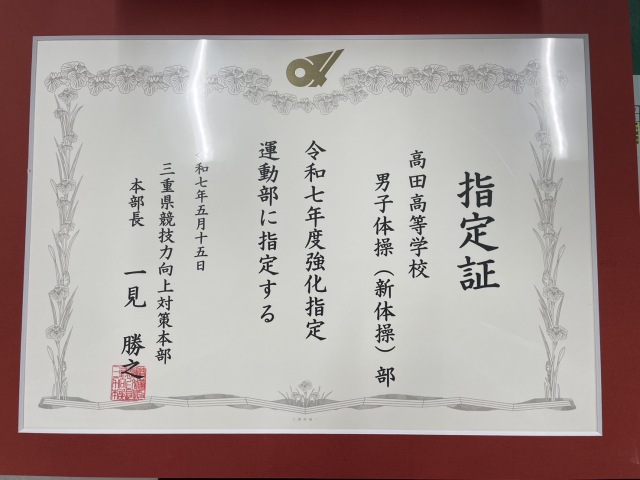 指定証
高田高等学校
男子体操（新体操）部
令和七年度強化指定
運動部に指定する
令和七年五月十五日
三重県競技力向上対策本部
本部長 一見 勝之